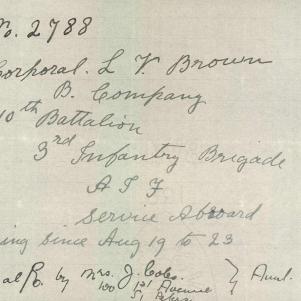 No. 2788
Corporal. L V. Brown
B. Company
10th Battalion
3rd Infantry Brigade
A I F
Service Abroad
ing since Aug 19 to 23
by Mrs. J. Cole.
100 1st Avenue
Aunt.